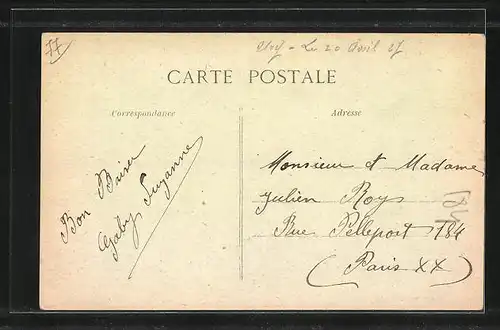 77
Le 20 Avril 27
CARTE POSTALE
Correspondance
Adresse
Bon Baiser
Gaby Suzanne
Monsieur et Madame
Julien Roy
Rue Pelleport 184
(Paris XX)
184